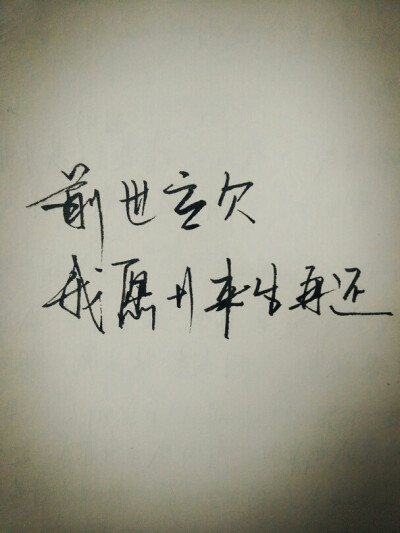 前世欠
我愿用来生再还